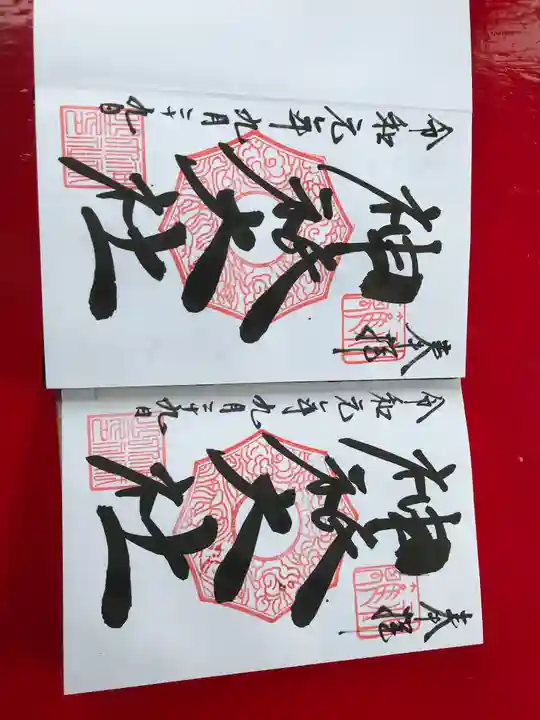 奉拝
神祇大社
令和元年九月二十九日
奉拝
神祇大社
令和元年九月二十九日